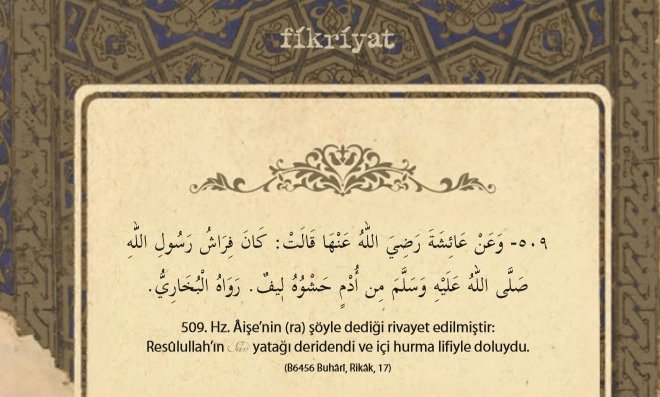 fikriyat
٥٠٩- وَعَنْ عَائِشَةَ رَضِيَ اللهُ عَنْهَا قَالَتْ: كَانَ فِرَاشُ رَسُولِ اللهِ
صَلَّى اللهُ عَلَيْهِ وَسَلَّمَ مِن أُدْمٍ حَشْوُهُ لِيفٌ. رَوَاهُ الْبُخَارِيُّ.
509. Hz. Âişe’nin (ra) şöyle dediği rivayet edilmiştir:
Resûlullah’ın Sav yatağı deridendi ve içi hurma lifiyle doluydu.
(B6456 Buhârî, Rikâk, 17)